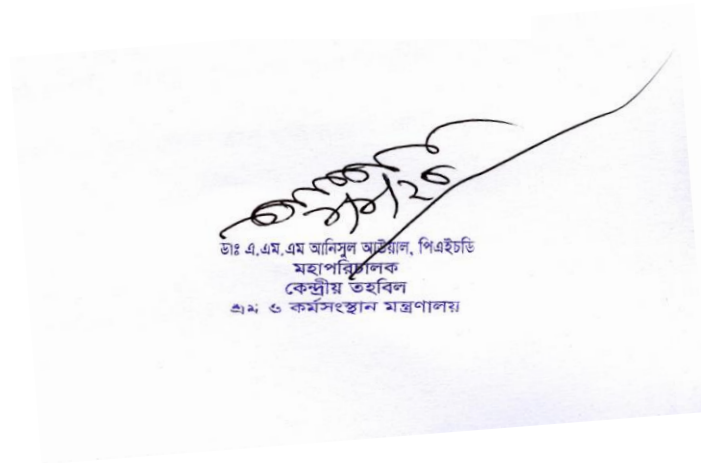 ডাঃ এ.এম.এম আনিসুল আউয়াল, পিএইচডি
মহাপরিচালক
কেন্দ্রীয় তহবিল
শ্রম ও কর্মসংস্থান মন্ত্রণালয়